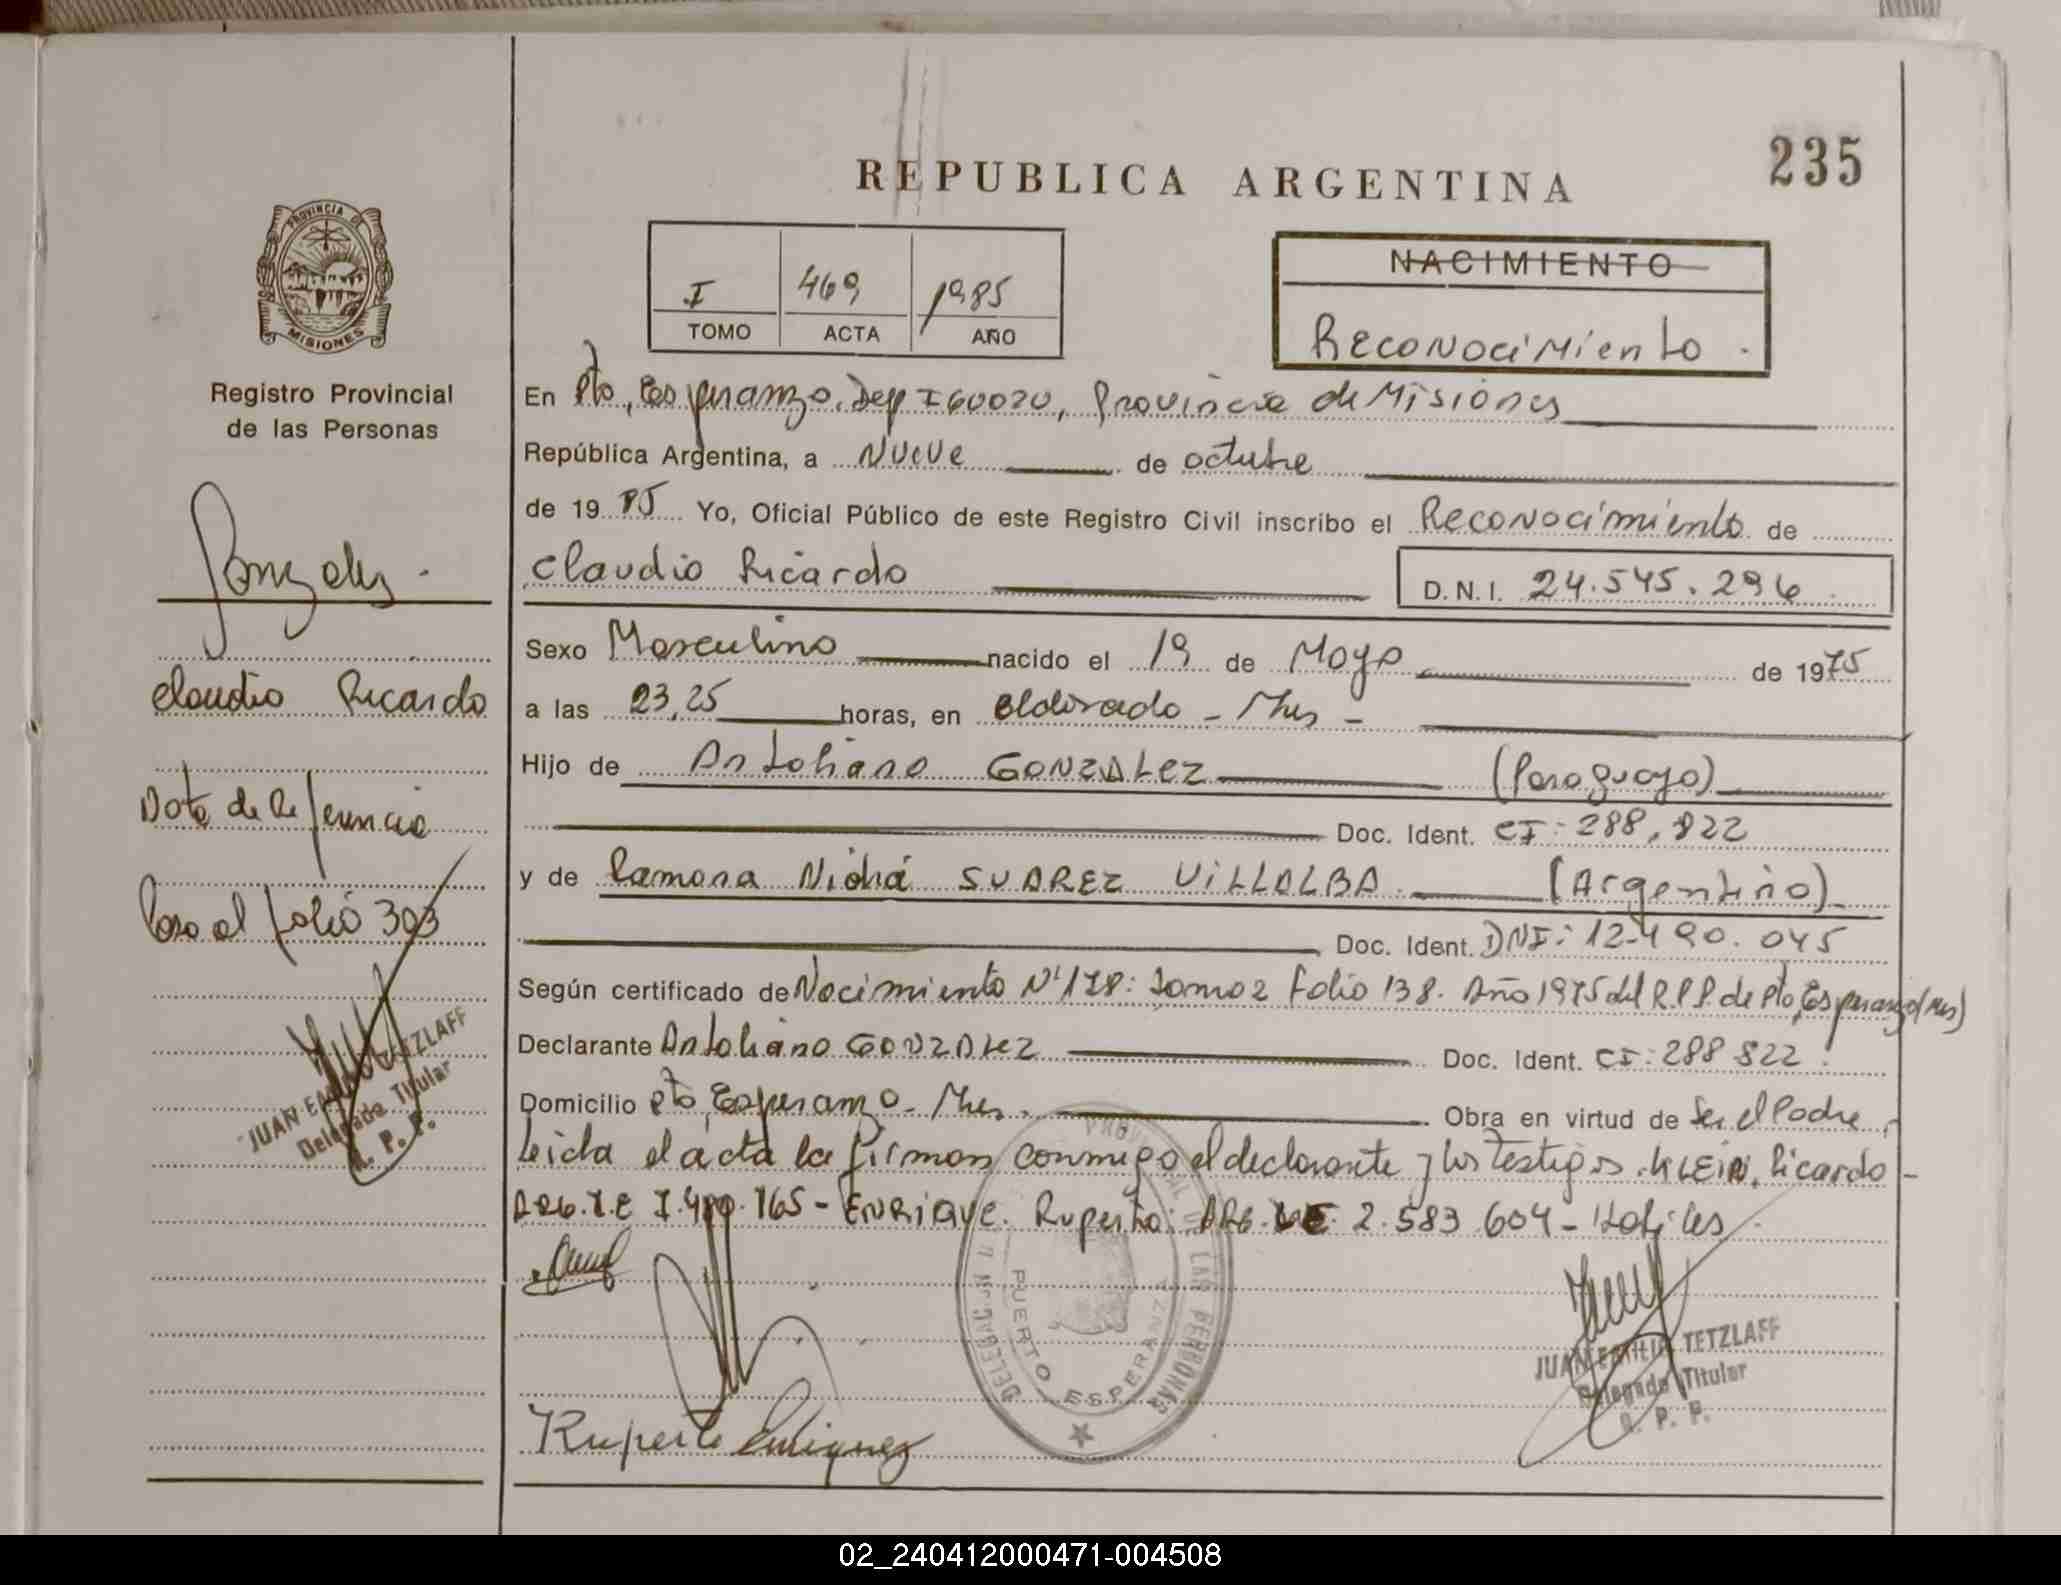 235
REPUBLICA ARGENTINA
PROVINCIA DE
MISIONES
Registro Provincial
de las Personas
I 469 1985
TOMO ACTA AÑO
NACIMIENTO
Reconocimiento.
En Pto, Esperanza, Dep IGUAZU, Provincia de Misiones
República Argentina, a Nueve de octubre
de 1985 Yo, Oficial Público de este Registro Civil inscribo el Reconocimiento de
Claudio Ricardo D.N.I. 24.545.296
Sexo Masculino nacido el 19 de Mayo de 1975
a las 23,25 horas, en Eldorado - Mnes -
Hijo de Antoliano GONZALEZ (Paraguayo)
Doc. Ident. CI: 288,822
y de Ramona SUAREZ VILLALBA (Argentina)
Doc. Ident. DNI: 12.490.045
Según certificado de Nacimiento Nº 178: Tomo 2 Folio 138. Año 1975 del R.P.P. de Pto, Esperanza (Mes)
Declarante Antoliano GONZALEZ Doc. Ident. CI: 288 822.
Domicilio Pto, Esperanza - Mnes. Obra en virtud de Ser el Padre,
leida el acta la firman conmigo el declarante y los testigos. KLEIN, Ricardo -
ARG. L.E 7.480.165 - ENRIQUE. Ruperto. ARG. LE. 2.583.604 - Habiles.
Ruperto Enriquez
DELEGACION PROVINCIAL DE LAS PERSONAS
PUERTO ESPERANZA
JUAN EMILIO TETZLAFF
Delegado Titular
R. P. P.
Gonzalez.
Claudio Ricardo
Nota de Referencia
Paso al folio 303
JUAN EMILIO TETZLAFF
Delegado Titular
R. P. P.
02_240412000471-004508